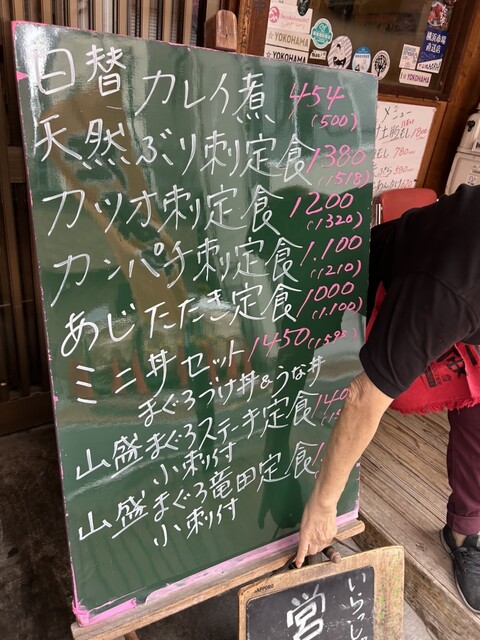 日替 カレイ煮 454
(500)
天然ぶり刺定食 1380
(1518)
カツオ刺定食 1200
(1320)
カンパチ刺定食 1.100
(1210)
あじたたき定食 1000
(1.100)
ミニ丼セット 1450 (1595)
まぐろづけ丼&うな丼
山盛まぐろステーキ定食 140
小刺付
山盛まぐろ竜田定食
小刺付
いらっし
営
SAPPORO
メニュー
780
YOKOHAMA
YOKOHAMA
YOKOHAMA
横浜市場直送店